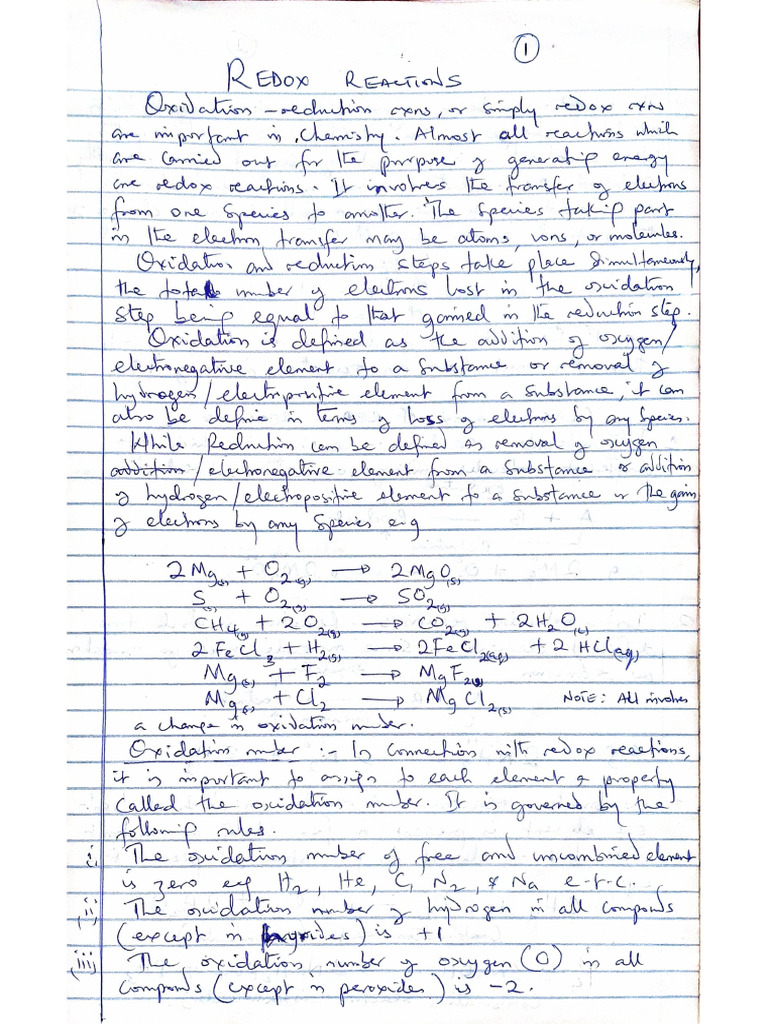 1
REDOX REACTIONS
Oxidation-reduction rxns, or simply redox rxns
are important in Chemistry. Almost all reactions which
are carried out for the purpose of generating energy
are redox reactions. It involves the transfer of electrons
from one species to another. The species taking part
in the electron transfer may be atoms, ions, or molecules.
Oxidation and reduction steps take place simultaneously,
the total number of electrons lost in the oxidation
step being equal to that gained in the reduction step.
Oxidation is defined as the addition of oxygen/
electronegative element to a substance or removal of
hydrogen/electropositive element from a substance, it can
also be define in terms of loss of electrons by any species.
While Reduction can be defined as removal of oxygen
addition/electronegative element from a substance or addition
of hydrogen/electropositive element to a substance or the gain
of electrons by any species e.g
2Mg(s) + O2(g) → 2MgO(s)
S(s) + O2(g) → SO2(g)
CH4(g) + 2O2(g) → CO2(g) + 2H2O(l)
2FeCl3 + H2(g) → 2FeCl2(aq) + 2HCl(aq)
Mg(s) + F2 → MgF2(s)
Mg(s) + Cl2 → MgCl2(s) NOTE: All involves
a change in oxidation number.
Oxidation number :- In connection with redox reactions,
it is important to assign to each element a property
called the oxidation number. It is governed by the
following rules.
i, The oxidation number of free and uncombined element
is zero eg H2, He, C, N2, & Na e.t.c.
(ii) The oxidation number of hydrogen in all compounds
(except in hydrides) is +1
(iii) The oxidation number of oxygen (O) in all
compounds (except in peroxides) is -2.